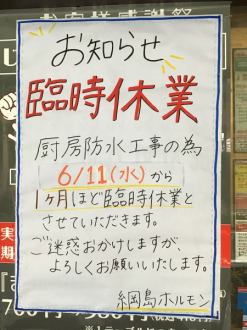 お客様感謝祭
お知らせ
臨時休業
厨房防水工事の為
6/11(水)から
1ヶ月ほど臨時休業と
させていただきます。
ご迷惑おかけしますが、
よろしくお願いいたします。
綱島ホルモン